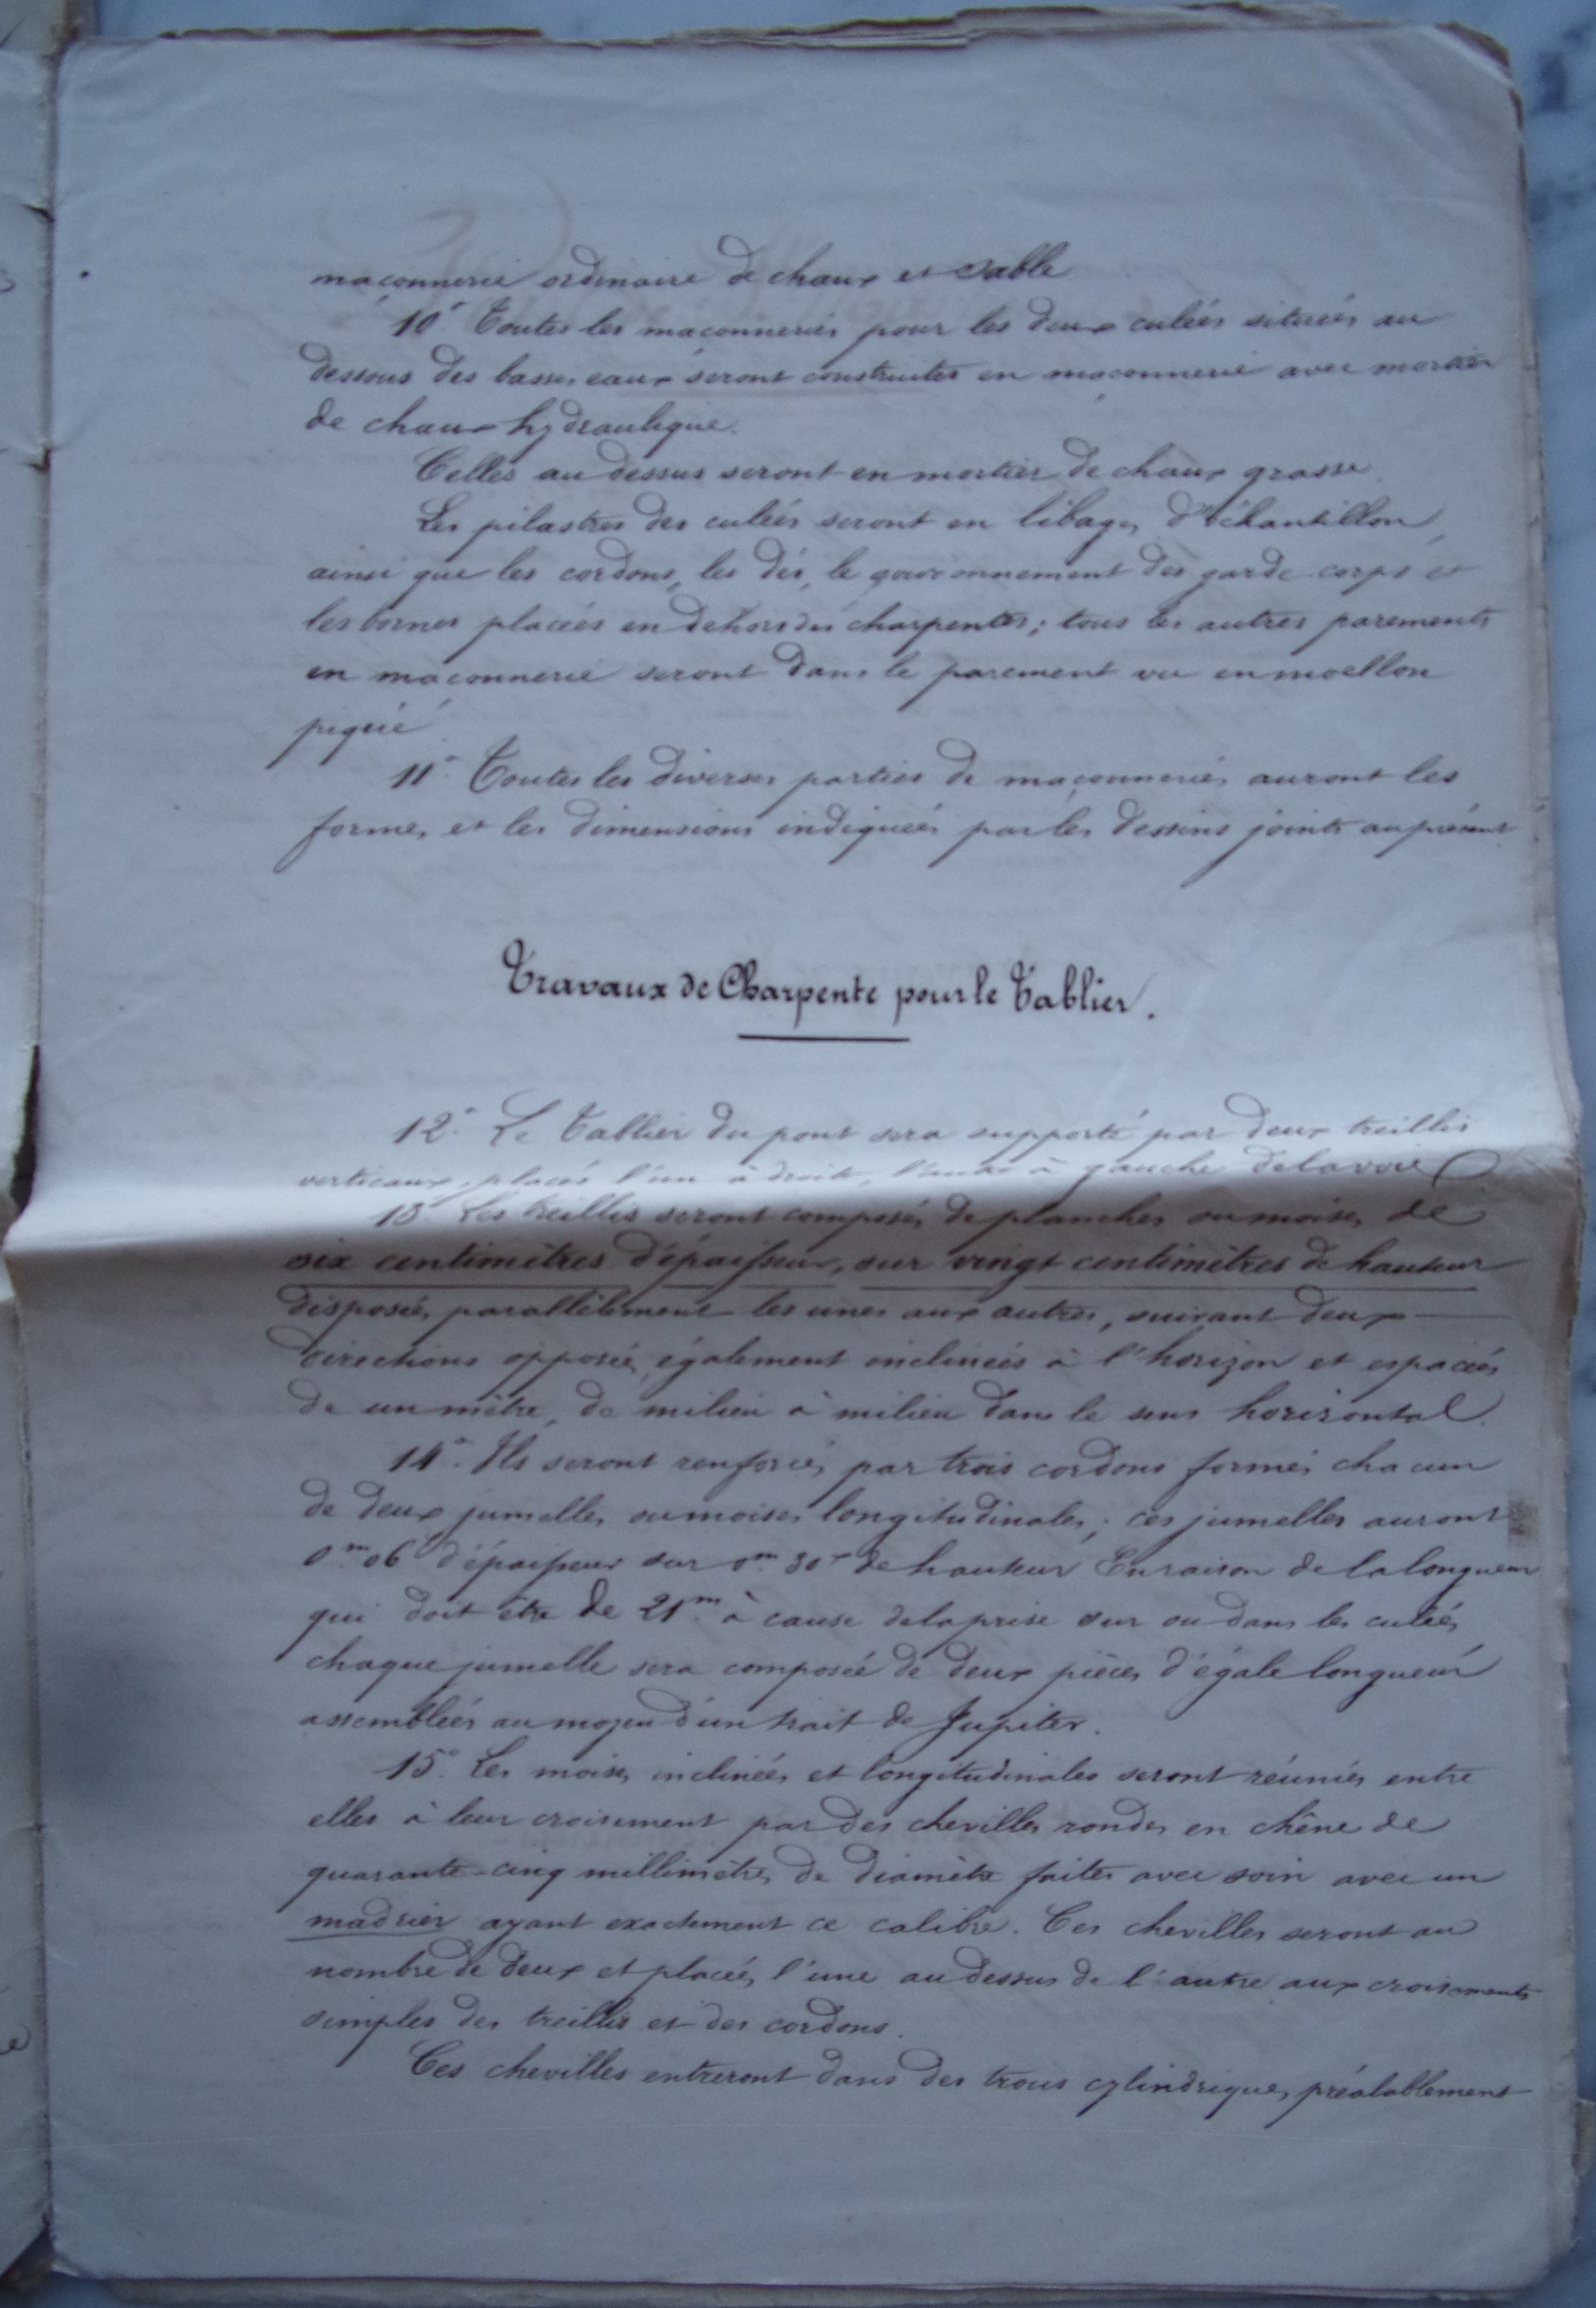 maçonnerie ordinaire de chaux et sable
10° Toutes les maçonneries pour les deux culées situées au
dessous des basses eaux seront construites en maçonnerie avec mortier
de chaux hydraulique.
Celles au dessus seront en mortier de chaux grasse.
Les pilastres des culées seront en libages d'échantillon,
ainsi que les cordons, les dés, le couronnement des garde-corps et
les bornes placées en dehors des charpentes; tous les autres parements
en maçonnerie seront dans le parement vu en moellon
piqué.
11° Toutes les diverses parties de maçonneries auront les
formes et les dimensions indiquées par les dessins joints au présent
Travaux de Charpente pour le Tablier.
12° Le Tablier du pont sera supporté par deux treillis
verticaux, placés l'un à droite, l'autre à gauche de la voie
13° Les treillis seront composés de planches ou moises de
six centimètres d'épaisseur, sur vingt centimètres de hauteur
disposées parallèlement les unes aux autres, suivant deux
directions opposées, également inclinées à l'horizon et espacées
de un mètre, de milieu à milieu dans le sens horizontal.
14° Ils seront renforcés par trois cordons formés chacun
de deux jumelles ou moises longitudinales; ces jumelles auront
0m06 d'épaisseur sur 0m 30 de hauteur En raison de la longueur
qui doit être de 21m à cause de la prise sur ou dans les culées,
chaque jumelle sera composée de deux pièces d'égale longueur
assemblées au moyen d'un trait de Jupiter.
15° Les moises inclinées et longitudinales seront réunies entre
elles à leur croisement par des chevilles rondes en chêne de
quarante-cinq millimètres de diamètre faites avec soin avec un
madrier ayant exactement ce calibre. Ces chevilles seront au
nombre de deux et placées l'une au dessus de l'autre aux croisements
simples des treillis et des cordons.
Ces chevilles entreront dans des trous cylindriques, préalablement